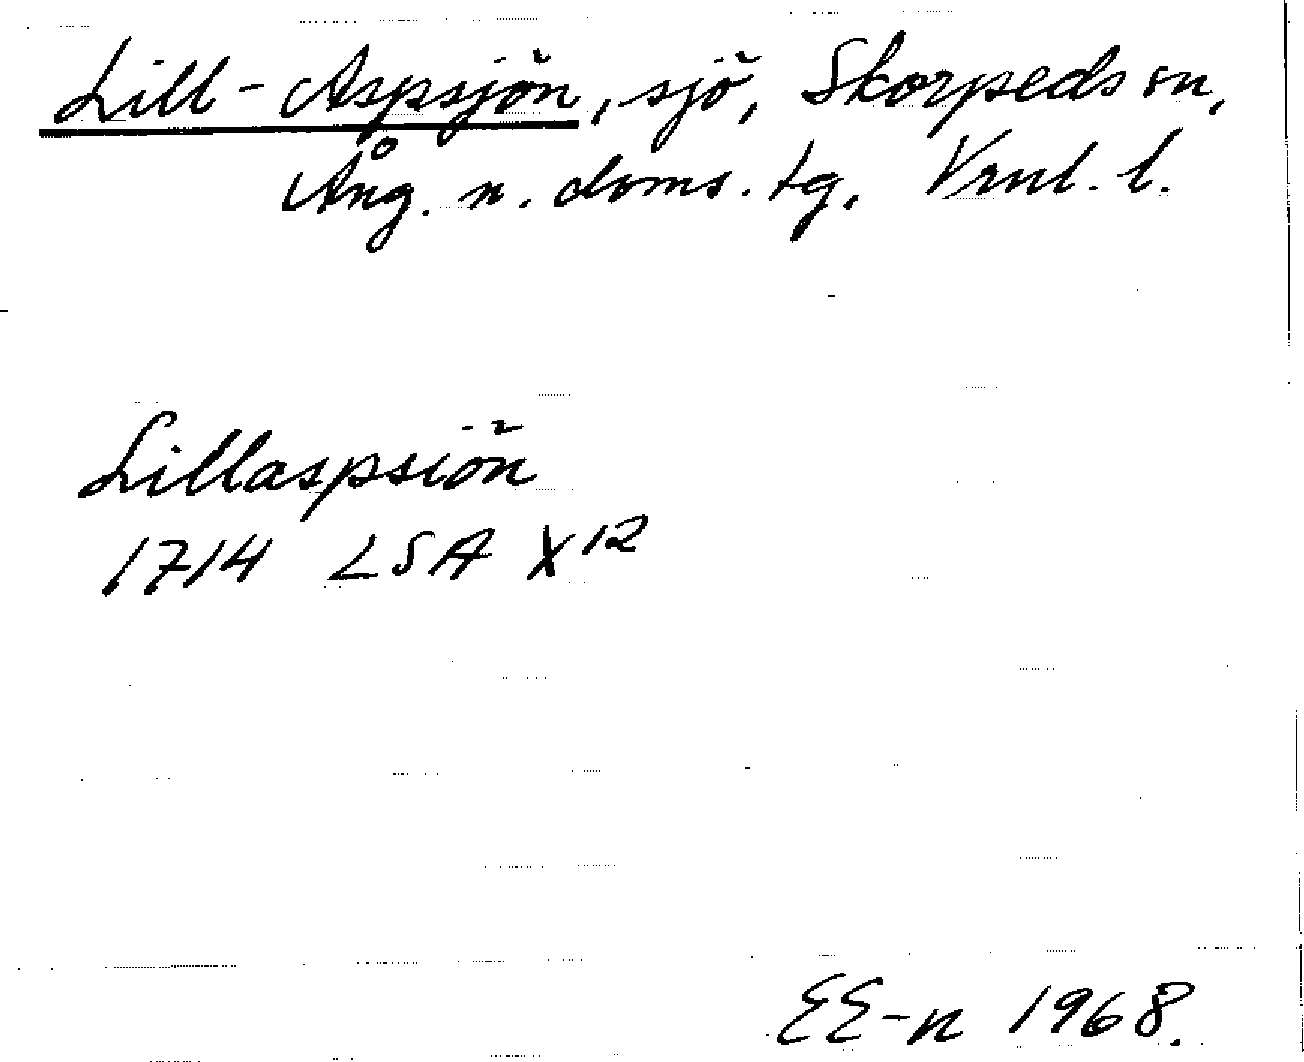 Lill-Aspsjön, sjö, Skorpeds sn,
Ång. n. doms. tg, Vrnl. l.
Lillaspsiön
1714 LSA X12
EE-n 1968.